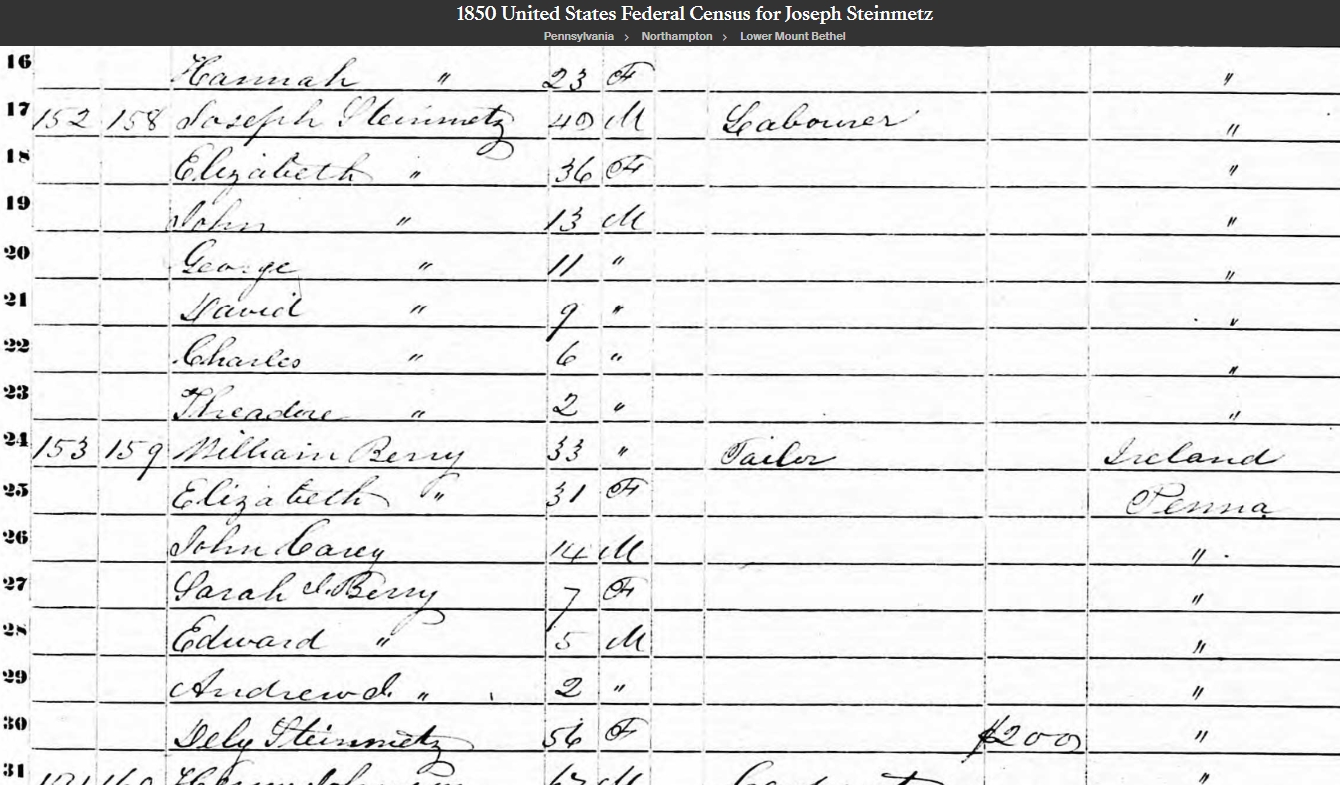 1850 United States Federal Census for Joseph Steinmetz
Pennsylvania > Northampton > Lower Mount Bethel
16 Hannah " 23 F "
17 152 158 Joseph Steinmetz 40 M Labourer "
18 Elizabeth " 36 F "
19 John " 13 M "
20 George " 11 " "
21 David " 9 " "
22 Charles " 6 " "
23 Theadore " 2 " "
24 153 159 William Berry 33 " Tailor Ireland
25 Elizabeth " 31 F Penna
26 John Carey 14 M "
27 Sarah J. Berry 7 F "
28 Edward " 5 M "
29 Andrew J. " 2 " "
30 Dely Steinmetz 56 F $200 "
31 "